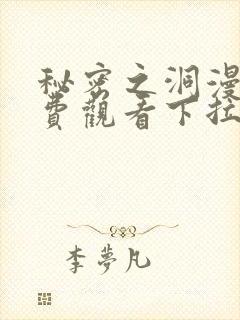 秘密之洞漫
費觀看下拉
李夢凡